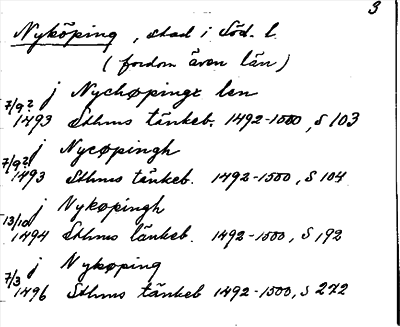 3
Nyköping, stad i Söd. l.
(fordom även län)
j Nychøpingx len
7/9? 1493 Sthms tänkeb. 1492-1500, S 103
j Nycøpingh
7/9? 1493 Sthms tänkeb. 1492-1500, S 104
j Nykøpingh
13/10 1494 Sthms tänkeb. 1492-1500, S 192
j Nykøping
7/3 1496 Sthms tänkeb 1492-1500, S 272